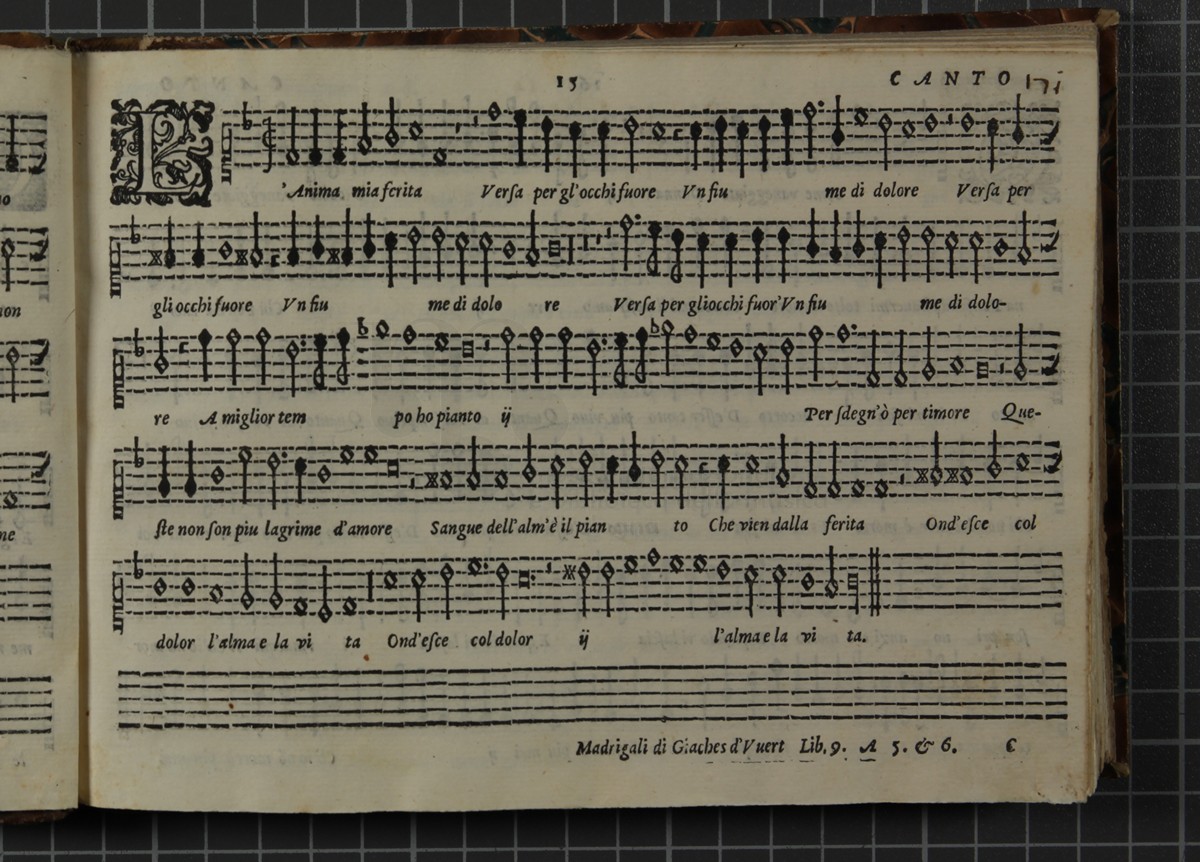 15 CANTO 171
L 'Anima mia ferita Verſa per gl'occhi fuore Vn fiu me di dolore Verſa per
gli occhi fuore Vn fiu me di dolo re Verſa per gli occhi fuor' Vn fiu me di dolo-
re A miglior tem po ho pianto ij Per ſdegn'ò per timore Que-
ſte non ſon piu lagrime d'amore Sangue dell'alm'è il pian to Che vien dalla ferita Ond'eſce col
dolor l'alma e la vi ta Ond'eſce col dolor ij l'alma e la vi ta.
Madrigali di Giaches d'Vuert Lib. 9. A 5. & 6. C